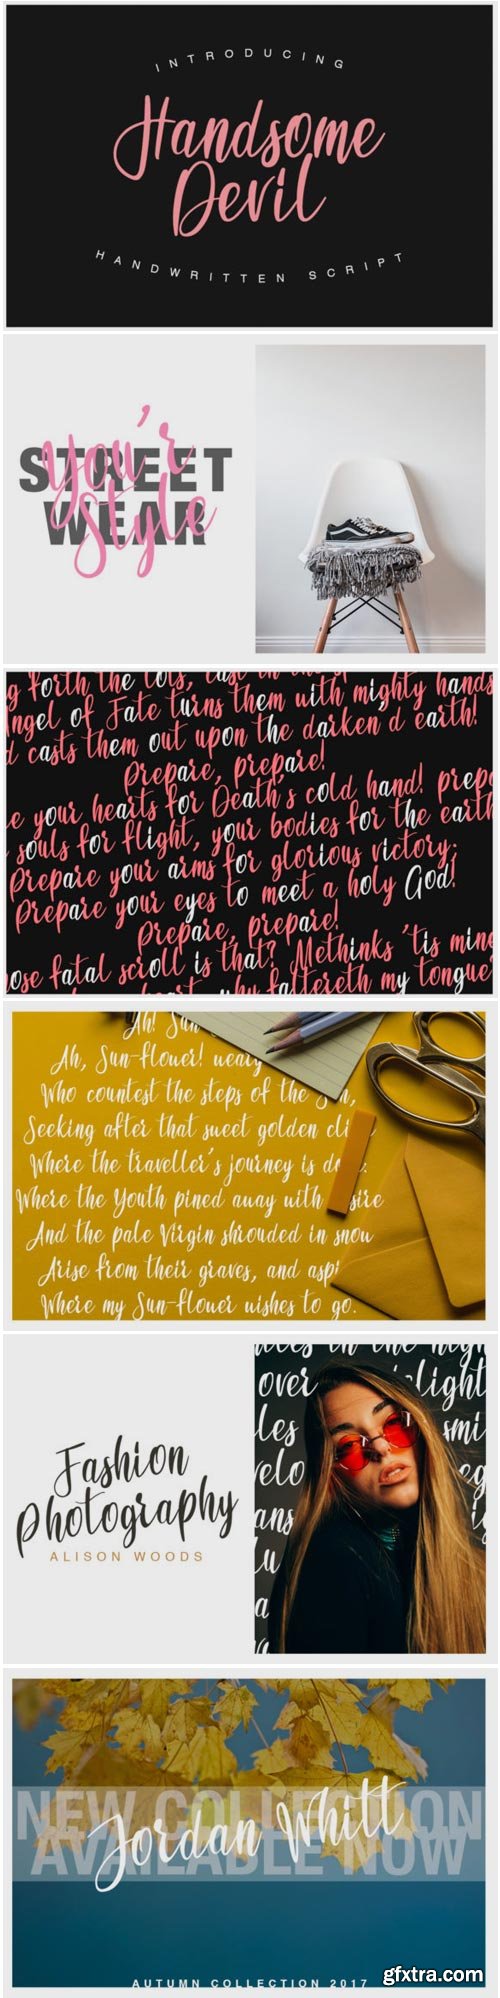 INTRODUCING
Handsome
Devil
HANDWRITTEN SCRIPT
You'r
STREET
Style
WEAR
g forth the lots, cast in
Angel of Fate turns them with mighty hands
d casts them out upon the darken'd earth!
Prepare, prepare!
e your hearts for Death's cold hand! prep
souls for flight, your bodies for the earth
Prepare your arms for glorious victory;
Prepare your eyes to meet a holy God!
Prepare, prepare!
ose fatal scroll is that? Methinks 'tis mine
heart, why faltereth my tongue
Ah! Sun
Ah, Sun-flower! weary
Who countest the steps of the Sun,
Seeking after that sweet golden cli
Where the traveller's journey is done:
Where the Youth pined away with desire
And the pale Virgin shrouded in snow
Arise from their graves, and aspi
Where my Sun-flower wishes to go.
in the nigh
over light
les smi
velo eg
ans
lu
a
Fashion
Photography
ALISON WOODS
NEW COLLECTION
Jordan Whitt
AVAILABLE NOW
AUTUMN COLLECTION 2017
gfxtra.com